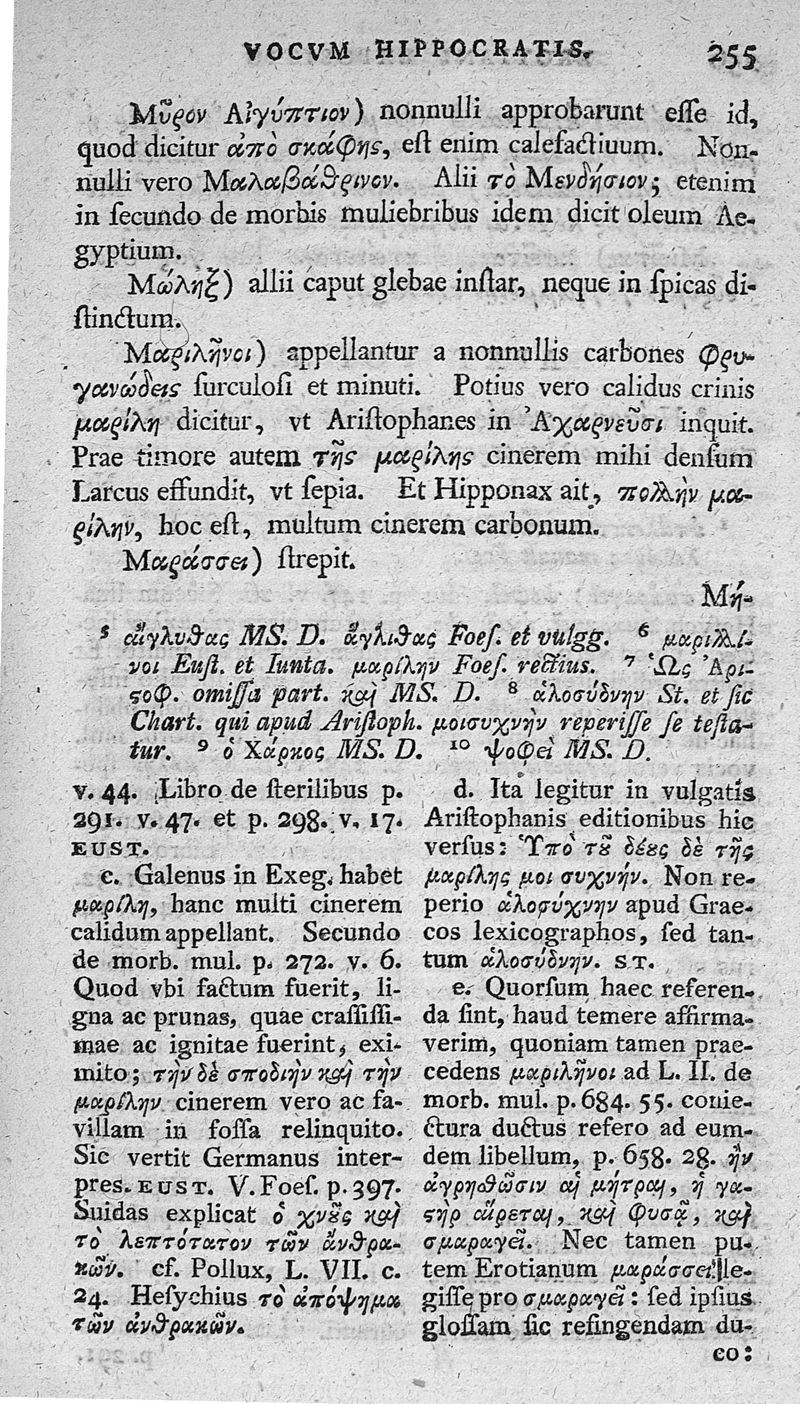 VOCVM HIPPOCRATIS. 255
Μῦρον Αἰγύπτιον) nonnulli approbarunt eſſe id,
quod dicitur ἀπὸ σκάφης, eſt enim calefactiuum. Non-
nulli vero Μαλαβάθρινον. Alii τὸ Μενδήσιον; etenim
in ſecundo de morbis muliebribus idem dicit oleum Ae-
gyptium.
Μώληξ) allii caput glebae inſtar, neque in ſpicas di-
ſtinctum.
Μαριλῆνοι) appellantur a nonnullis carbones φρυ-
γανώδεις ſurculoſi et minuti. Potius vero calidus crinis
μαρίλη dicitur, vt Ariſtophanes in Ἀχαρνεῦσι inquit.
Prae timore autem τῆς μαρίλης cinerem mihi denſum
Larcus effundit, vt ſepia. Et Hipponax ait, πολλὴν μα-
ρίλην, hoc eſt, multum cinerem carbonum.
Μαράσσει) ſtrepit.
Μή-
⁵ αἴγλυθας MS. D. ἄγλιθας Foeſ. et vulgg. ⁶ μαριλλί-
νοι Euſt. et Iunta. μαρίλην Foeſ. rectius. ⁷ Ὡς Ἀρι-
ϛοφ. omiſſa part. καὶ MS. D. ⁸ ἁλοσύδνην St. et ſic
Chart. qui apud Ariſtoph. μοισυχνὴν reperiſſe ſe teſta-
tur. ⁹ ὁ Χάρκος MS. D. ¹⁰ ψοφεῖ MS. D.
v. 44. Libro de ſterilibus p.
291. v. 47. et p. 298. v. 17.
EUST.
c. Galenus in Exeg. habet
μαρίλη, hanc multi cinerem
calidum appellant. Secundo
de morb. mul. p. 272. v. 6.
Quod vbi factum fuerit, li-
gna ac prunas, quae craſſiſſi-
mae ac ignitae fuerint, exi-
mito; τὴν δὲ σποδιὴν καὶ τὴν
μαρίλην cinerem vero ac fa-
villam in foſſa relinquito.
Sic vertit Germanus inter-
pres. EUST. V. Foeſ. p. 397.
Suidas explicat ὁ χνοῦς καὶ
τὸ λεπτότατον τῶν ἀνθρα-
κῶν. cf. Pollux, L. VII. c.
24. Heſychius τὸ ἀπόψημα
τῶν ἀνθρακῶν.
d. Ita legitur in vulgatis
Ariſtophanis editionibus hic
verſus: Ὑπὸ τοῦ δέους δὲ τῆς
μαρίλης μοι συχνήν. Non re-
perio ἁλοσύχνην apud Grae-
cos lexicographos, ſed tan-
tum ἁλοσύδνην. ST.
e. Quorſum haec referen-
da ſint, haud temere affirma-
verim, quoniam tamen prae-
cedens μαριλῆνοι ad L. II. de
morb. mul. p. 684. 55. conie-
ctura ductus refero ad eum-
dem libellum, p. 658. 28. ἢν
ἀγρηθῶσιν αἱ μήτραι, ἡ γα-
ϛὴρ αἴρεται, καὶ φυσᾷ, καὶ
σμαραγεῖ. Nec tamen pu-
tem Erotianum μαράσσει le-
giſſe pro σμαραγεῖ: ſed ipſius
gloſſam ſic refingendam du-
co: